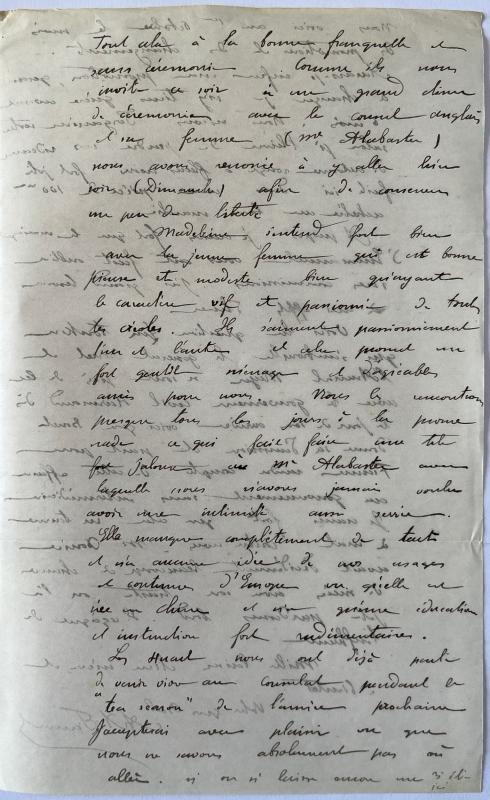 Tout cela à la bonne franquette et
sans cérémonie. Comme ils nous
invite ce soir à un grand diner
de cérémonie avec le consul anglais
et sa femme (Mme Alabaster)
nous avons renoncé à y aller hier
soir (Dimanche) afin de conserver
un peu de liberté
Madeleine s'entend fort bien
avec la jeune femme qui est bonne
pieuse et modeste bien qu'ayant
le caractère vif et passionné de toutes
les créoles. Ils s'aiment passionnément
l'un et l'autre et cela promet un
fort gentil ménage et d'agréables
amis pour nous. Nous les rencontrons
presque tous les jours à la prome
nade ce qui fait faire une tête
fort jalouse à Mme Alabaster avec
laquelle nous n'avons jamais voulu
avoir une intimité aussi serrée.
Elle manque complètement de tact
et n'a aucune idée de nos usages
et coutumes d'Europe vu qu'elle est
née en Chine et n'a qu'une éducation
et instruction fort rudimentaires.
Les Huart nous ont déjà parlé
de venir vivre au consulat pendant la
"tea season" de l'année prochaine
J'accepterai avec plaisir vu que
nous ne savons absolument pas où
aller. si on si laisse encore une
ici